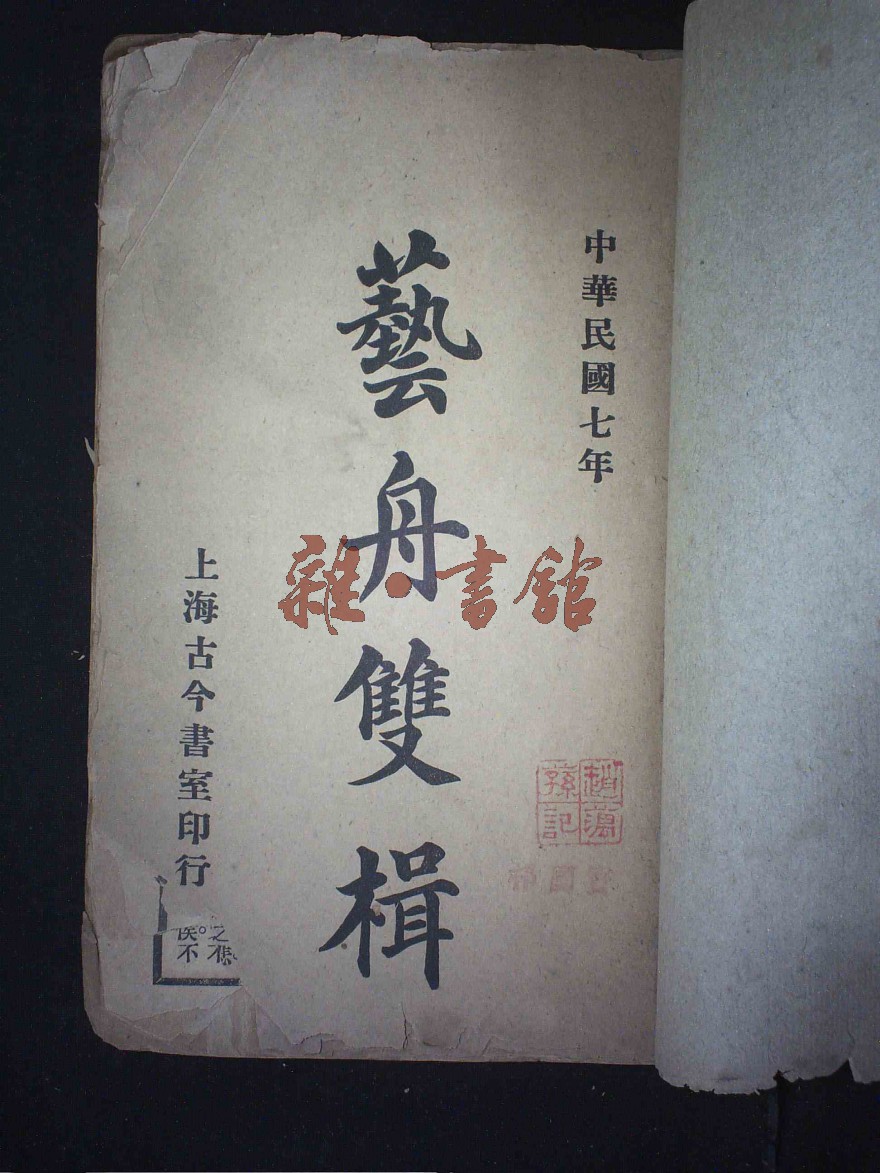 中華民國七年
藝舟雙楫
上海古今書室印行
雜·書館
趙
孫記
之
不